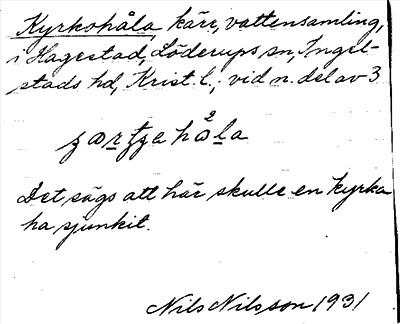 Kyrkohåla, kärr, vattensamling,
i Hagestad, Löderups sn, Ingel-
stads hd, Krist. l., vid n. del av 3.
Det sägs att här skulle en kyrka
ha sjunkit.
Nils Nilsson 1931